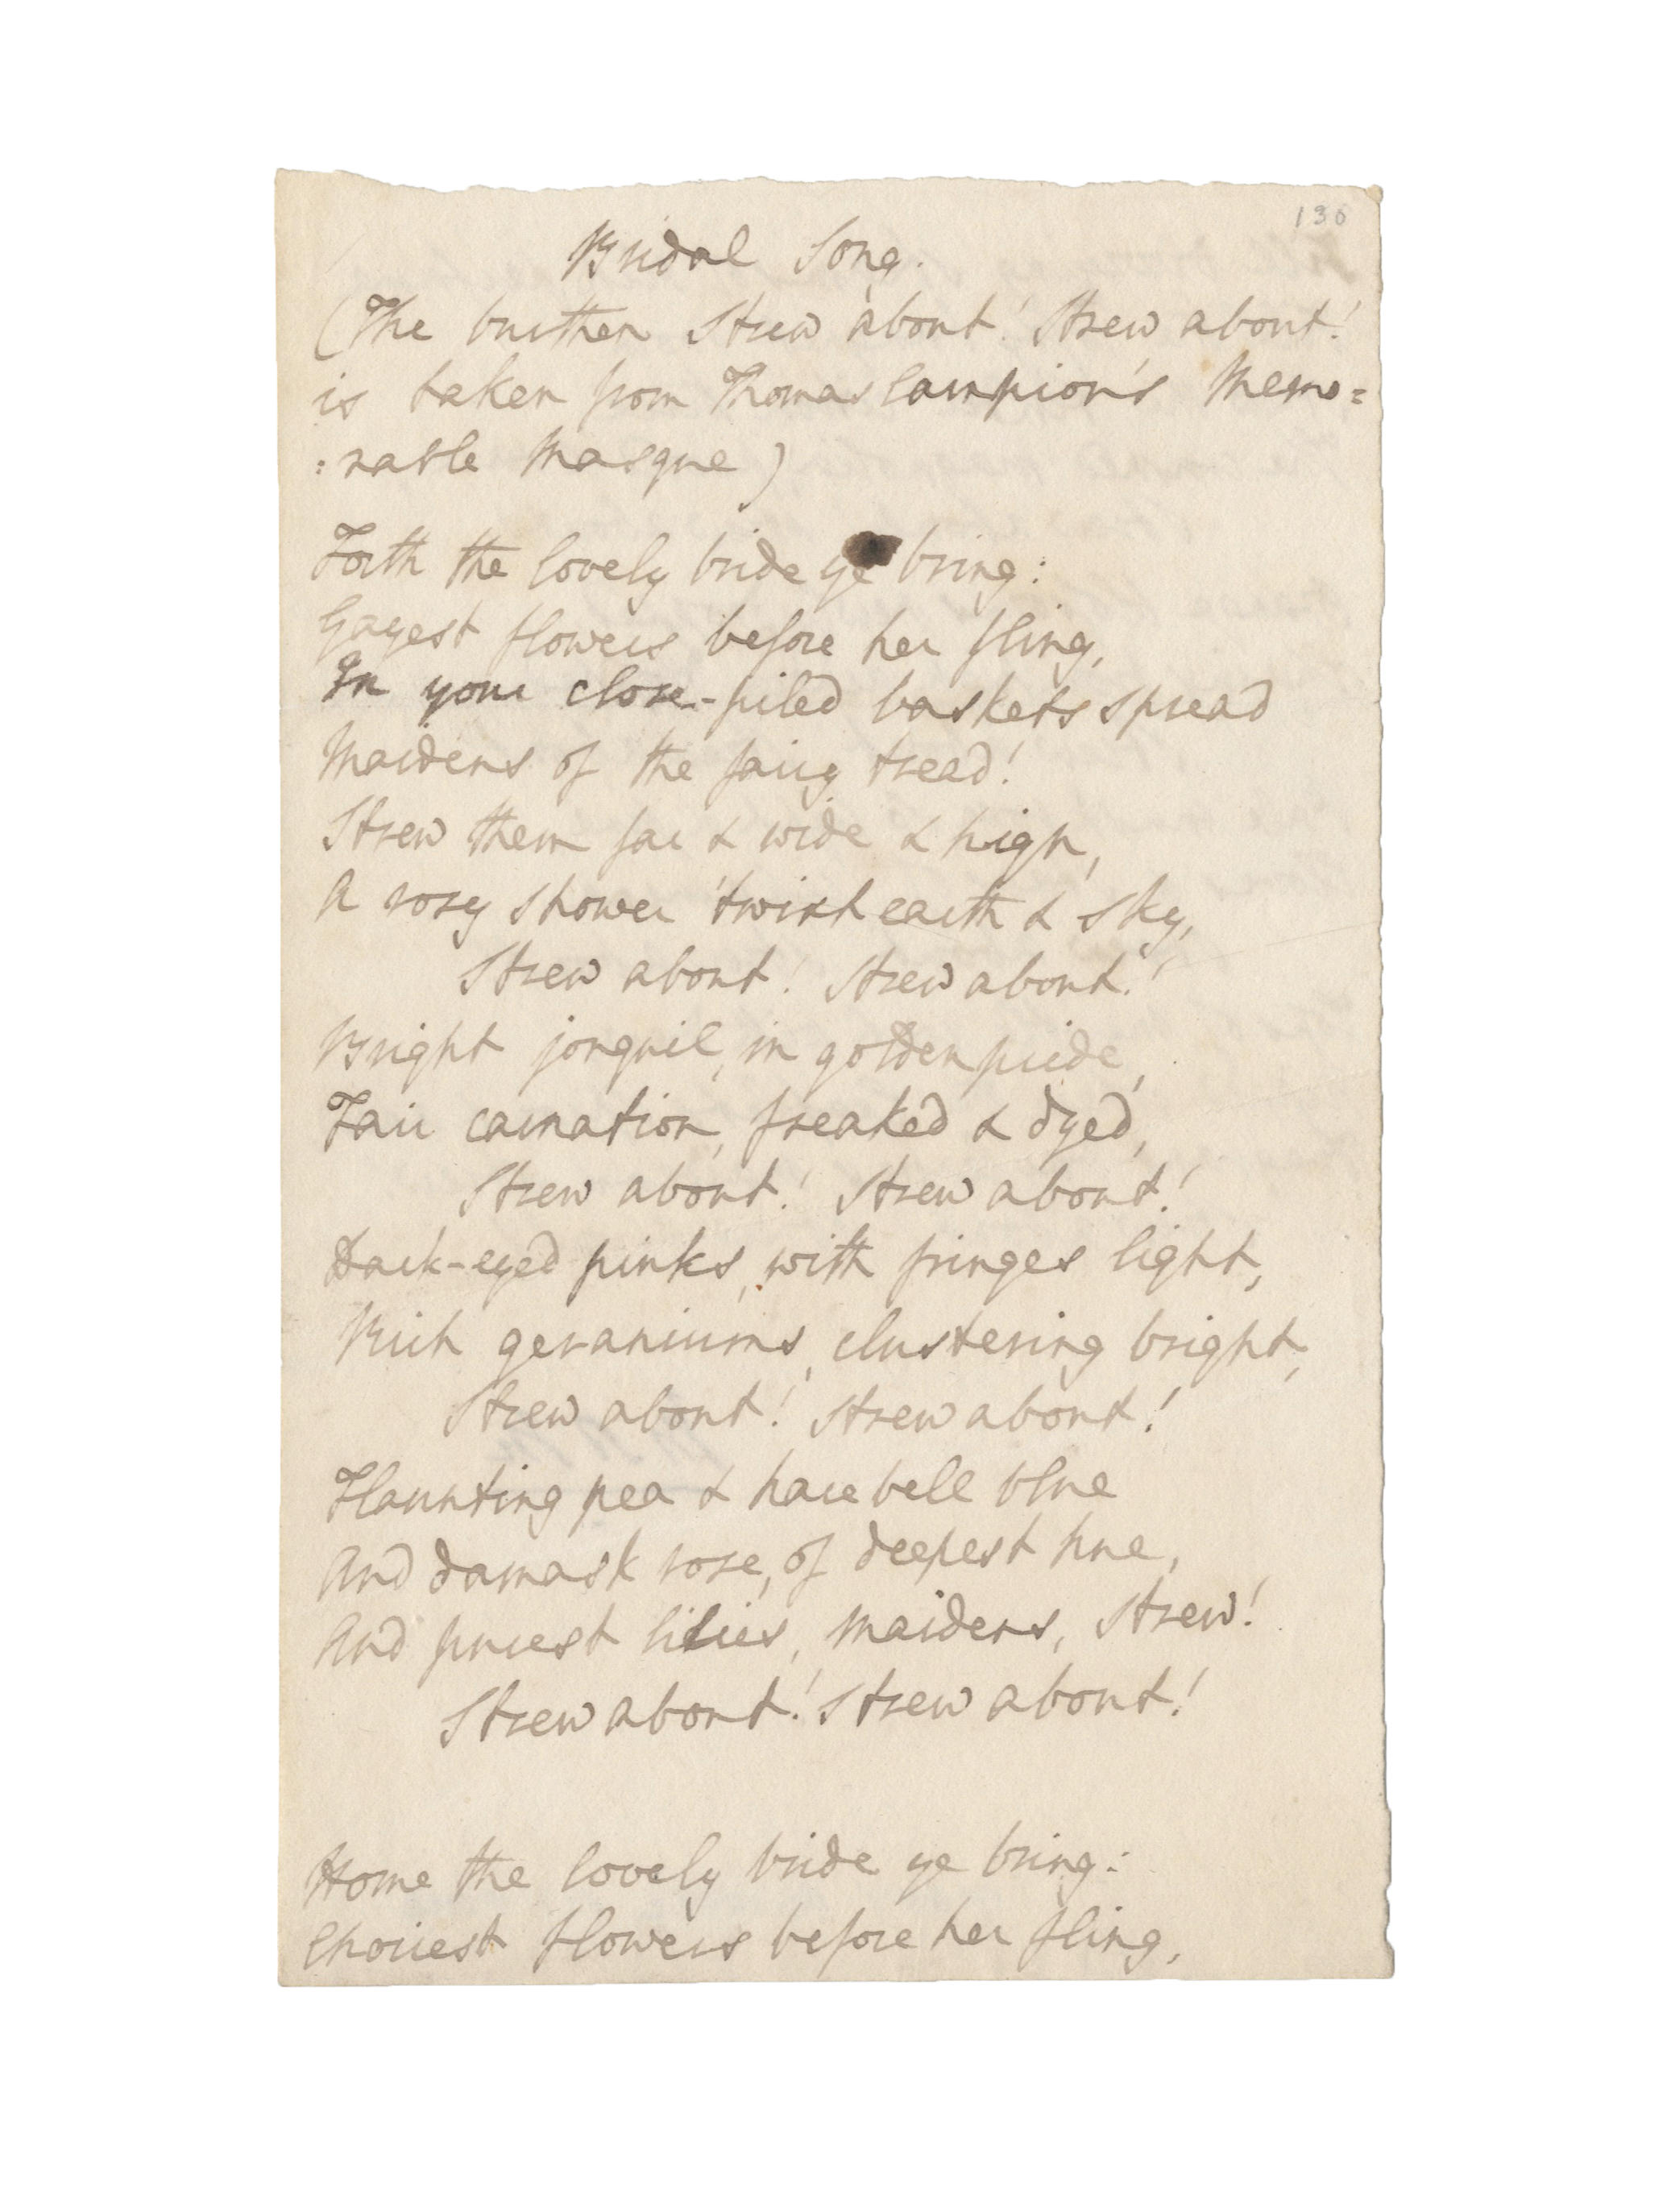 136
Bridal Song.
(The burthen Strew about! Strew about!
is taken from Thomas Campion's Memo=
:rable Masque)
Forth the lovely bride ye bring:
Gayest flowers before her fling,
In your close-piled baskets spread
Maidens of the fairy tread!
Strew them far & wide & high,
A rosy shower 'twixt earth & sky,
Strew about! Strew about!
Bright jonquil, in golden pride,
Fair carnation, freaked & dyed,
Strew about! Strew about!
Dark-eyed pinks, with fringes light,
Rich geraniums, clustering bright,
Strew about! Strew about!
Flaunting pea & harebell blue
And damask rose, of deepest hue,
And purest lilies, Maidens, Strew!
Strew about! Strew about!
Home the lovely bride ye bring:
Choicest flowers before her fling,